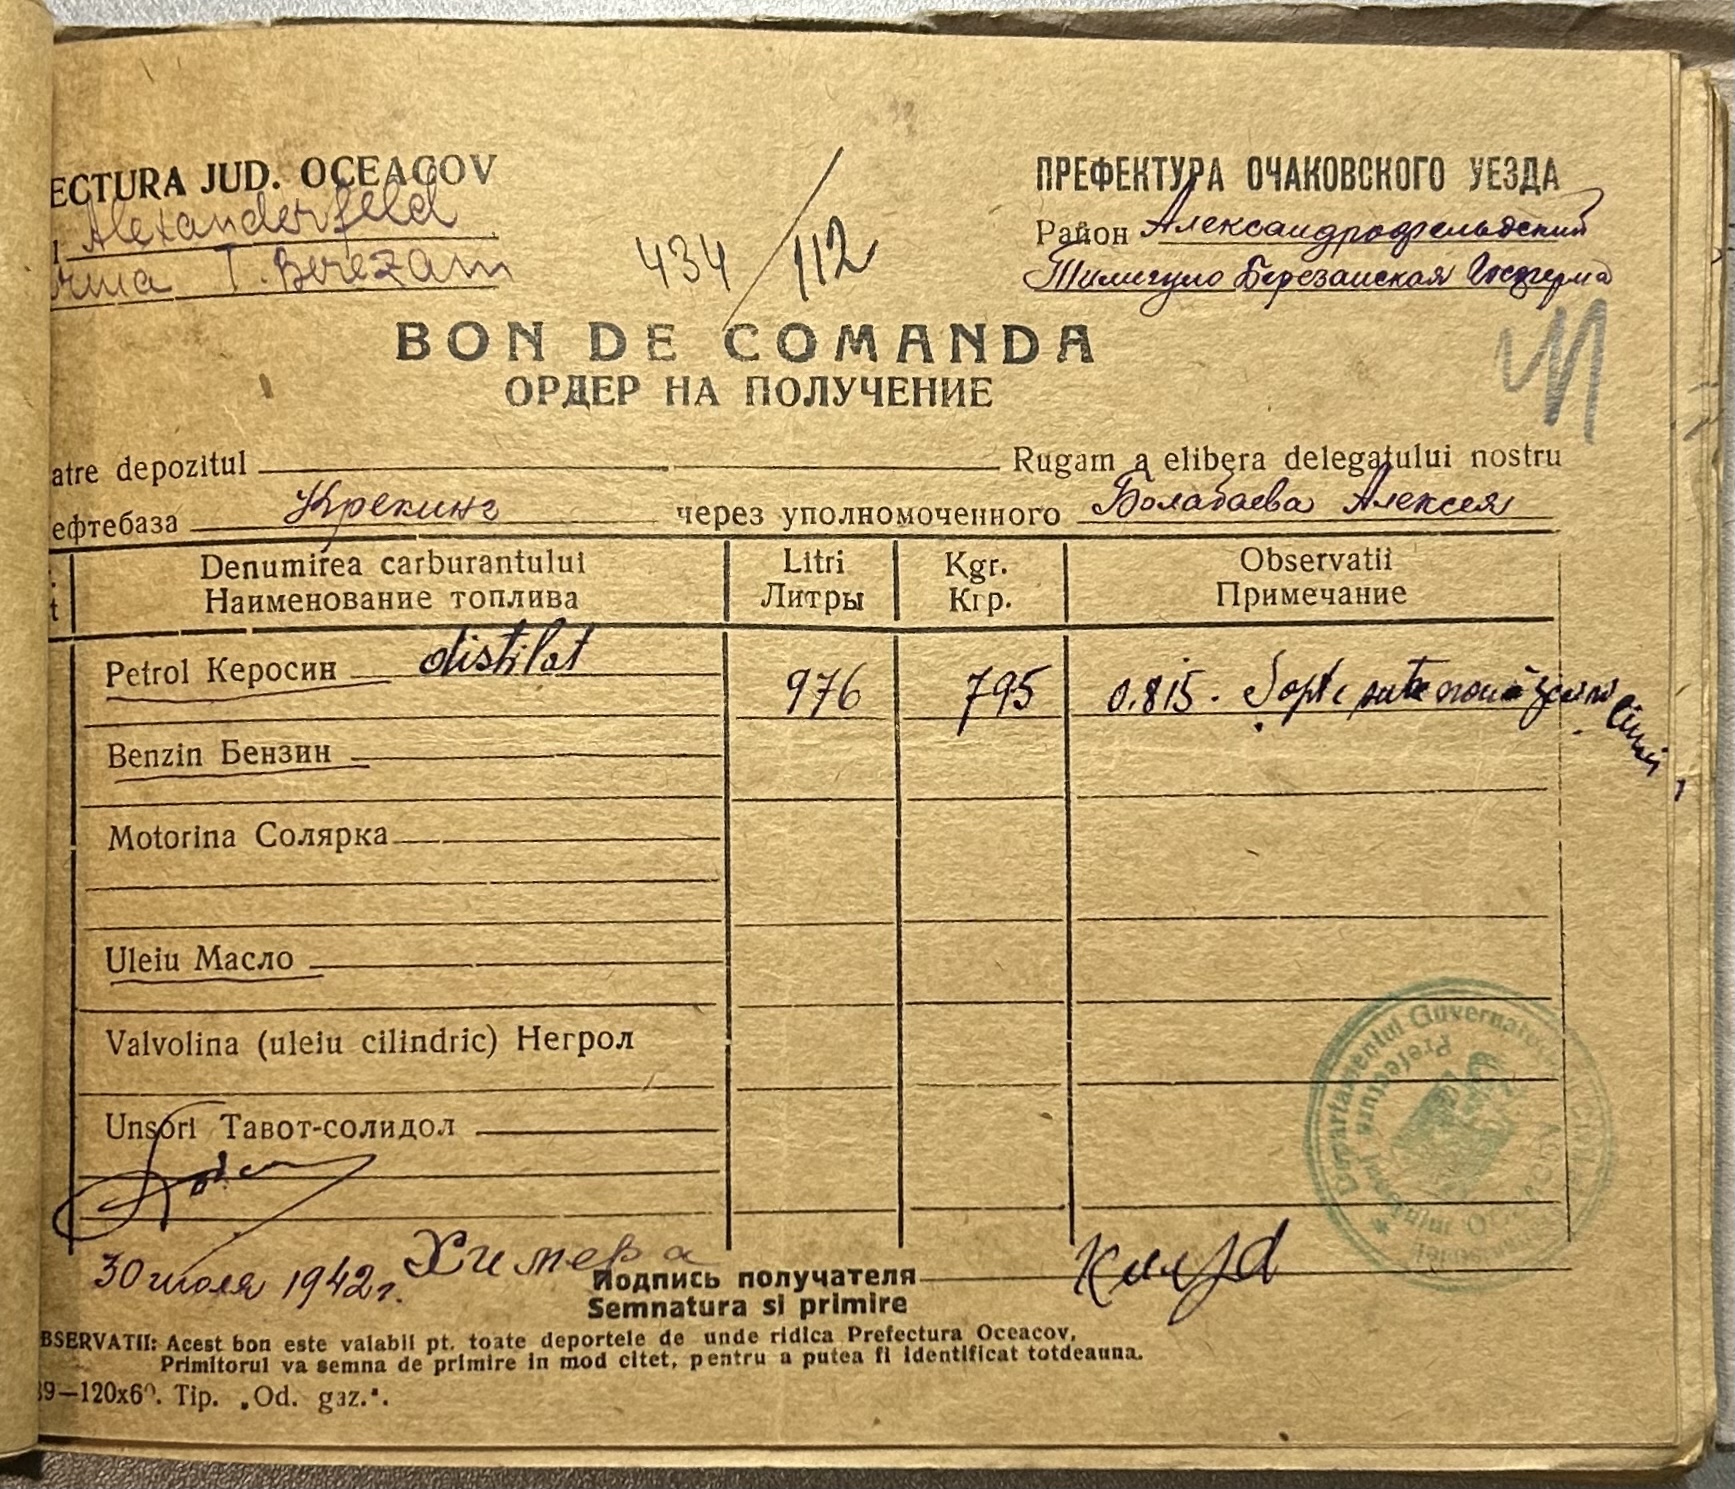 ECTURA JUD. OCEACOV
Alexanderfeld
T. Berezani
434/112
ПРЕФЕКТУРА ОЧАКОВСКОГО УЕЗДА
Район Александрофельдский
Тилигуло Березанская Госферма
BON DE COMANDA
ОРДЕР НА ПОЛУЧЕНИЕ
atre depozitul Rugam a elibera delegatului nostru
ефтебаза Крекинг через уполномоченного Болабаева Алексея
Denumirea carburantului Litri Kgr. Observatii
Наименование топлива Литры Кгр. Примечание
Petrol Керосин distilat 976 795 0.815. Șapte sute nouă zeci și cinci
Benzin Бензин
Motorina Солярка
Uleiu Масло
Valvolina (uleiu cilindric) Негрол
Unsori Тавот-солидол
30 июля 1942 г. Химера
Подпись получателя
Semnatura si primire
BSERVATII: Acest bon este valabil pt. toate deportele de unde ridica Prefectura Oceacov,
Primitorul va semna de primire in mod citet, pentru a putea fi identificat totdeauna.
39—120x60. Tip. „Od. gaz.".
Departamentul Guvernator
Prefectura